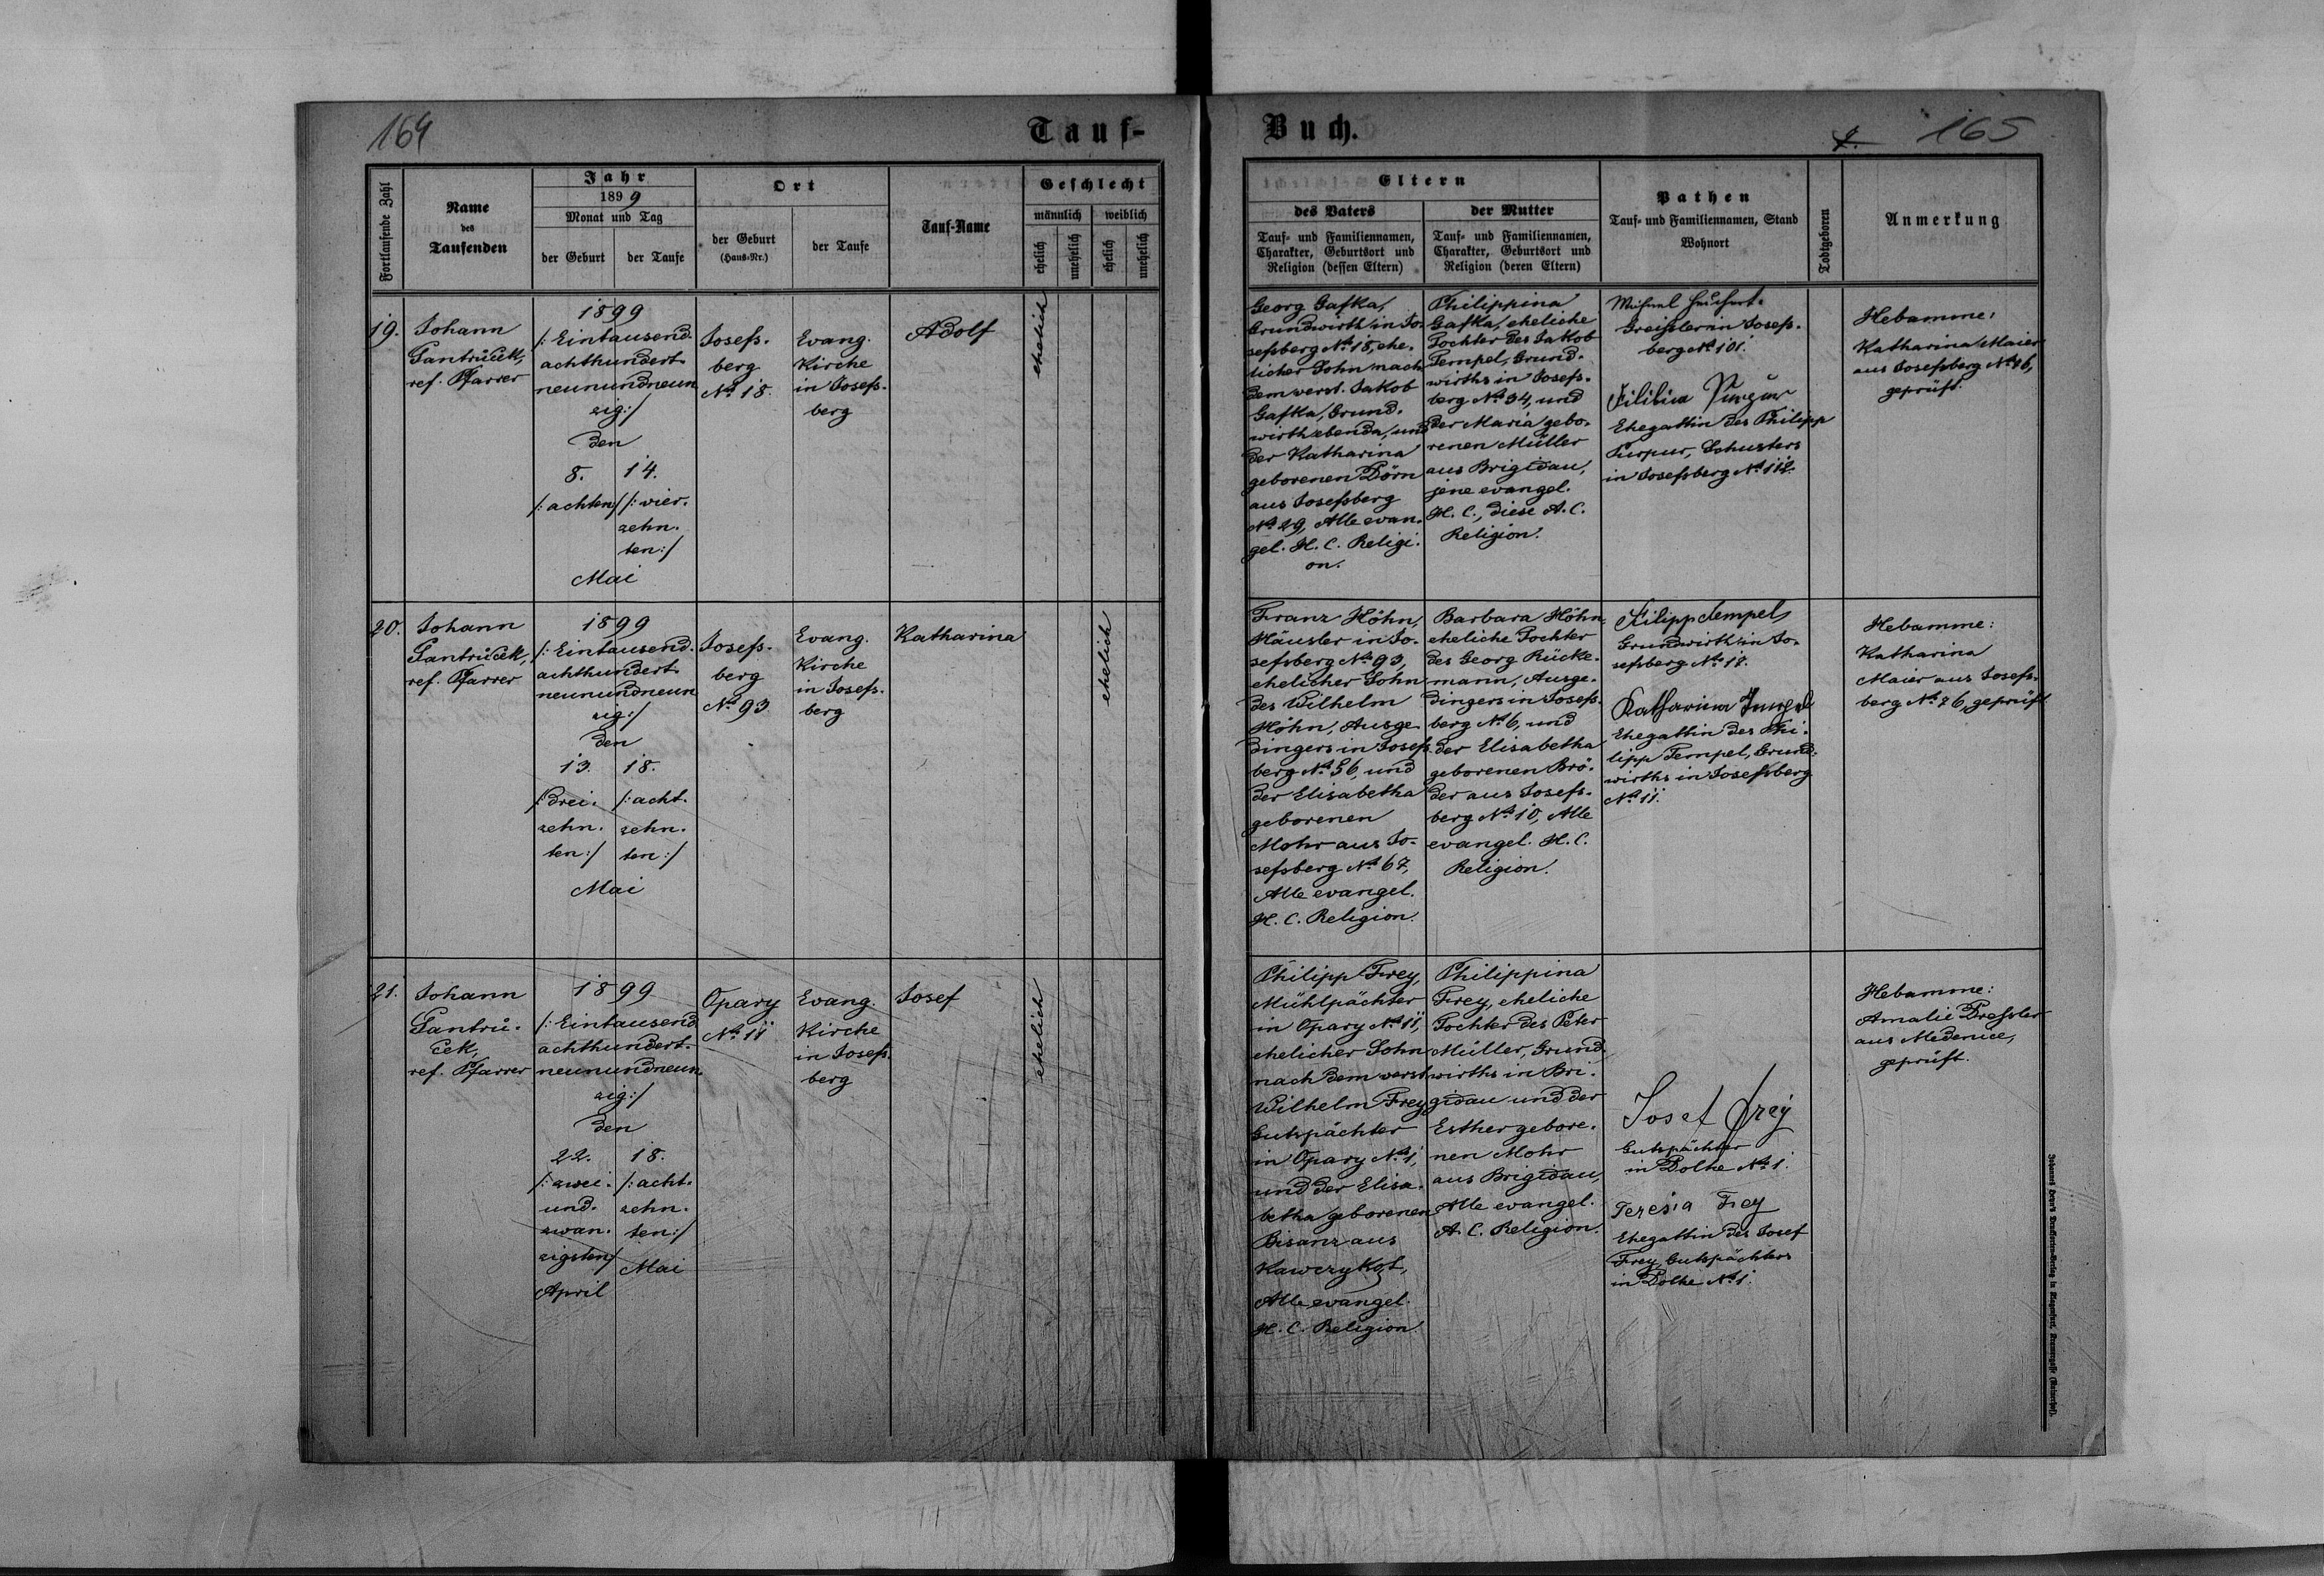 164
Tauf-
Fortlaufende Zahl
Name
des
Taufenden
Jahr
1899
Monat und Tag
der Geburt
der Taufe
Ort
der Geburt
(Haus-Nr.)
der Taufe
Tauf-Name
Geschlecht
männlich
weiblich
ehelich
unehelich
ehelich
unehelich
19.
Johann
Jantrůček,
ref. Pfarrer
1899
/: Eintausend-
achthundert-
neunundneun
zig :/
den
8.
/: achten /
14.
/: vier-
zehn-
ten :/
Mai
Josefs-
berg
No 18.
Evang.
Kirche
in Josefs-
berg
Adolf
ehelich
20.
Johann
Jantrůček,
ref. Pfarrer
1899
/: Eintausend-
achthundert-
neunundneun
zig :/
den
13.
/: drei-
zehn-
ten :/
18.
/: acht-
zehn-
ten :/
Mai
Josefs-
berg
No 93
Evang.
Kirche
in Josefs-
berg
Katharina
ehelich
21.
Johann
Jantrů-
ček,
ref. Pfarrer
1899
/: Eintausend
achthundert-
neunundneun
zig :/
den
22.
/: zwei-
und-
zwan-
zigsten /
April
18.
/: acht-
zehn-
ten :/
Mai
Opary
No 11
Evang.
Kirche
in Josefs-
berg
Josef
ehelich
Buch.
165
Eltern
des Vaters
Tauf- und Familiennamen,
Charakter, Geburtsort und
Religion (dessen Eltern)
der Mutter
Tauf- und Familiennamen,
Charakter, Geburtsort und
Religion (deren Eltern)
Pathen
Tauf- und Familiennamen, Stand
Wohnort
Todtgeboren
Anmerkung
Georg Gafka,
Grundwirth in Jo-
sefsberg No 18, ehe-
licher Sohn nach
dem verst. Jakob
Gafka, Grund-
wirth ebenda, und
der Katharina
geborenen Dörn
aus Josefsberg
No 29, Alle evan-
gel. H. C. Religi-
on.
Philippina
Gafka, eheliche
Tochter des Jakob
Tempel, Grund-
wirths in Josefs-
berg No 34, und
der Maria gebo-
renen Müller
aus Brigidau,
jene evangel.
H. C., diese A. C.
Religion.
Greissler in Josefs-
berg No 101.
Ehegattin des Philipp
Purpur, Schusters
in Josefsberg No 112.
Hebamme:
Katharina Maier
aus Josefsberg No 76,
geprüft.
Franz Höhn,
Häusler in Jo-
sefsberg No 93,
ehelicher Sohn
des Wilhelm
Höhn, Ausge-
dingers in Josefs-
berg No 56, und
der Elisabetha
geborenen
Mohr aus Jo-
sefsberg No 67,
Alle evangel.
H. C. Religion.
Barbara Höhn,
eheliche Tochter
des Georg Rücke-
mann, Ausge-
dingers in Josefs-
berg No 6, und
der Elisabetha
geborenen Brö-
der aus Josefs-
berg No 10, Alle
evangel. H. C.
Religion.
Filipp Tempel
Grundwirth in Jo-
sefsberg No 11.
Katharina Tempel
Ehegattin des Phi-
lipp Tempel, Grund-
wirths in Josefsberg
No 11.
Hebamme:
Katharina
Maier aus Josefs-
berg No 76, geprüft
Philipp Frey,
Mühlpächter
in Opary No 11,
ehelicher Sohn
nach dem verst
Wilhelm Frey,
Gutspächter
in Opary No 1,
und der Elisa-
betha geborenen
Bisanz aus
Kawczykąt,
Alle evangel.
H. C. Religion.
Philippina
Frey, eheliche
Tochter des Peter
Müller, Grund-
wirths in Bri-
gidau und der
Esther gebore-
nen Mohr
aus Brigidau,
Alle evangel.
A. C. Religion.
Josef Frey
Gutspächter
in Dolhe No 1.
Teresia Frey
Ehegattin des Josef
Frey, Gutspächters
in Dolhe No 1.
Hebamme:
Amalie Dressler
aus Medenice,
geprüft.